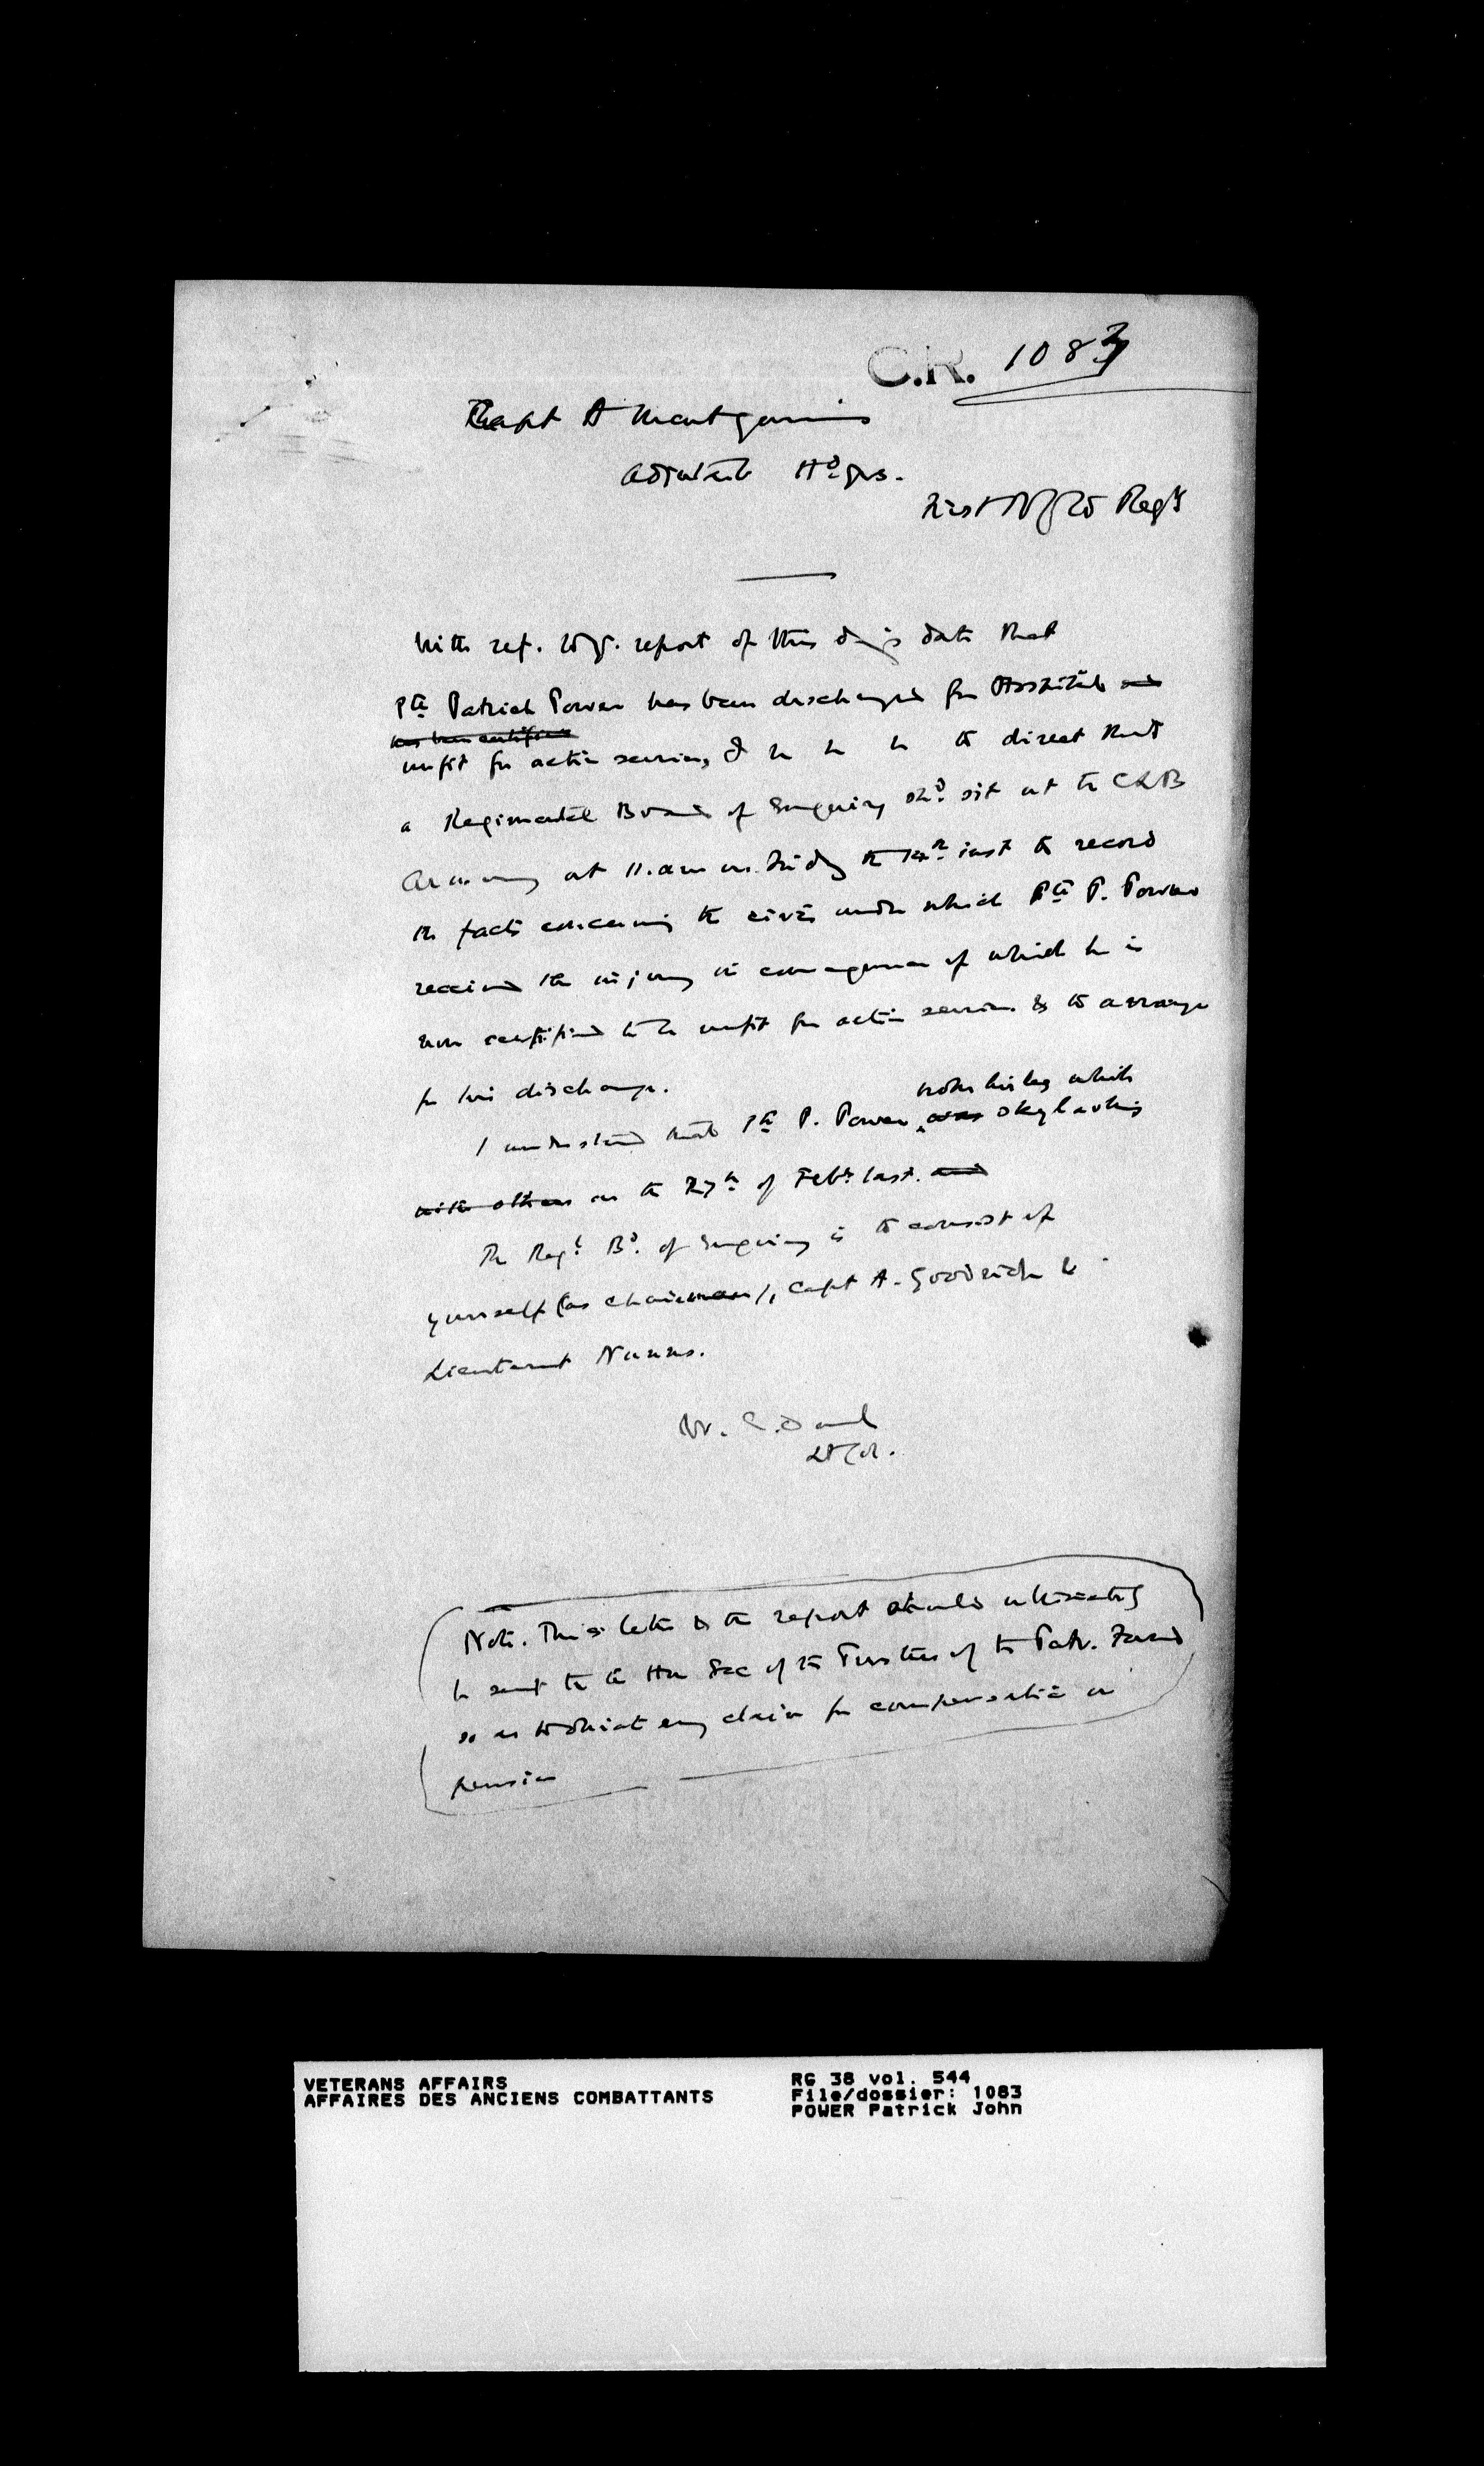 C.R. 1083
Capt A Montgomerie
Adjutant Hd qrs.
First Nfld Regt
With ref. to yr. report of this day's date that
Pte Patrick Power has been discharged fm Hospital and
has been certified
unfit for active service, I h h h to direct that
a Regimental Board of Enquiry shd. sit at the CLB
Armoury at 11. am on Friday the inst to record
the facts concerning the circs under which Pte P. Power
received the injury in consequence of which he is
now certified to be unfit for active service & to arrange
for his discharge.
broke his leg while
I understand that Pte P. Power was skylarking
with others on the 27th of Feby last. and
The Regt. Bd. of Enquiry is to consist of
yourself (as chairman), Capt A. Goodridge &
Lieutenant Nunns.
W. Lt Col.
Note. This letter & the report should ultimately
be sent to the Hon Sec of the Trustees of the Patr. Fund
so as to obviate any claim for compensation or
pension
VETERANS AFFAIRS
AFFAIRES DES ANCIENS COMBATTANTS
RG 38 vol. 544
File/dossier: 1083
POWER Patrick John